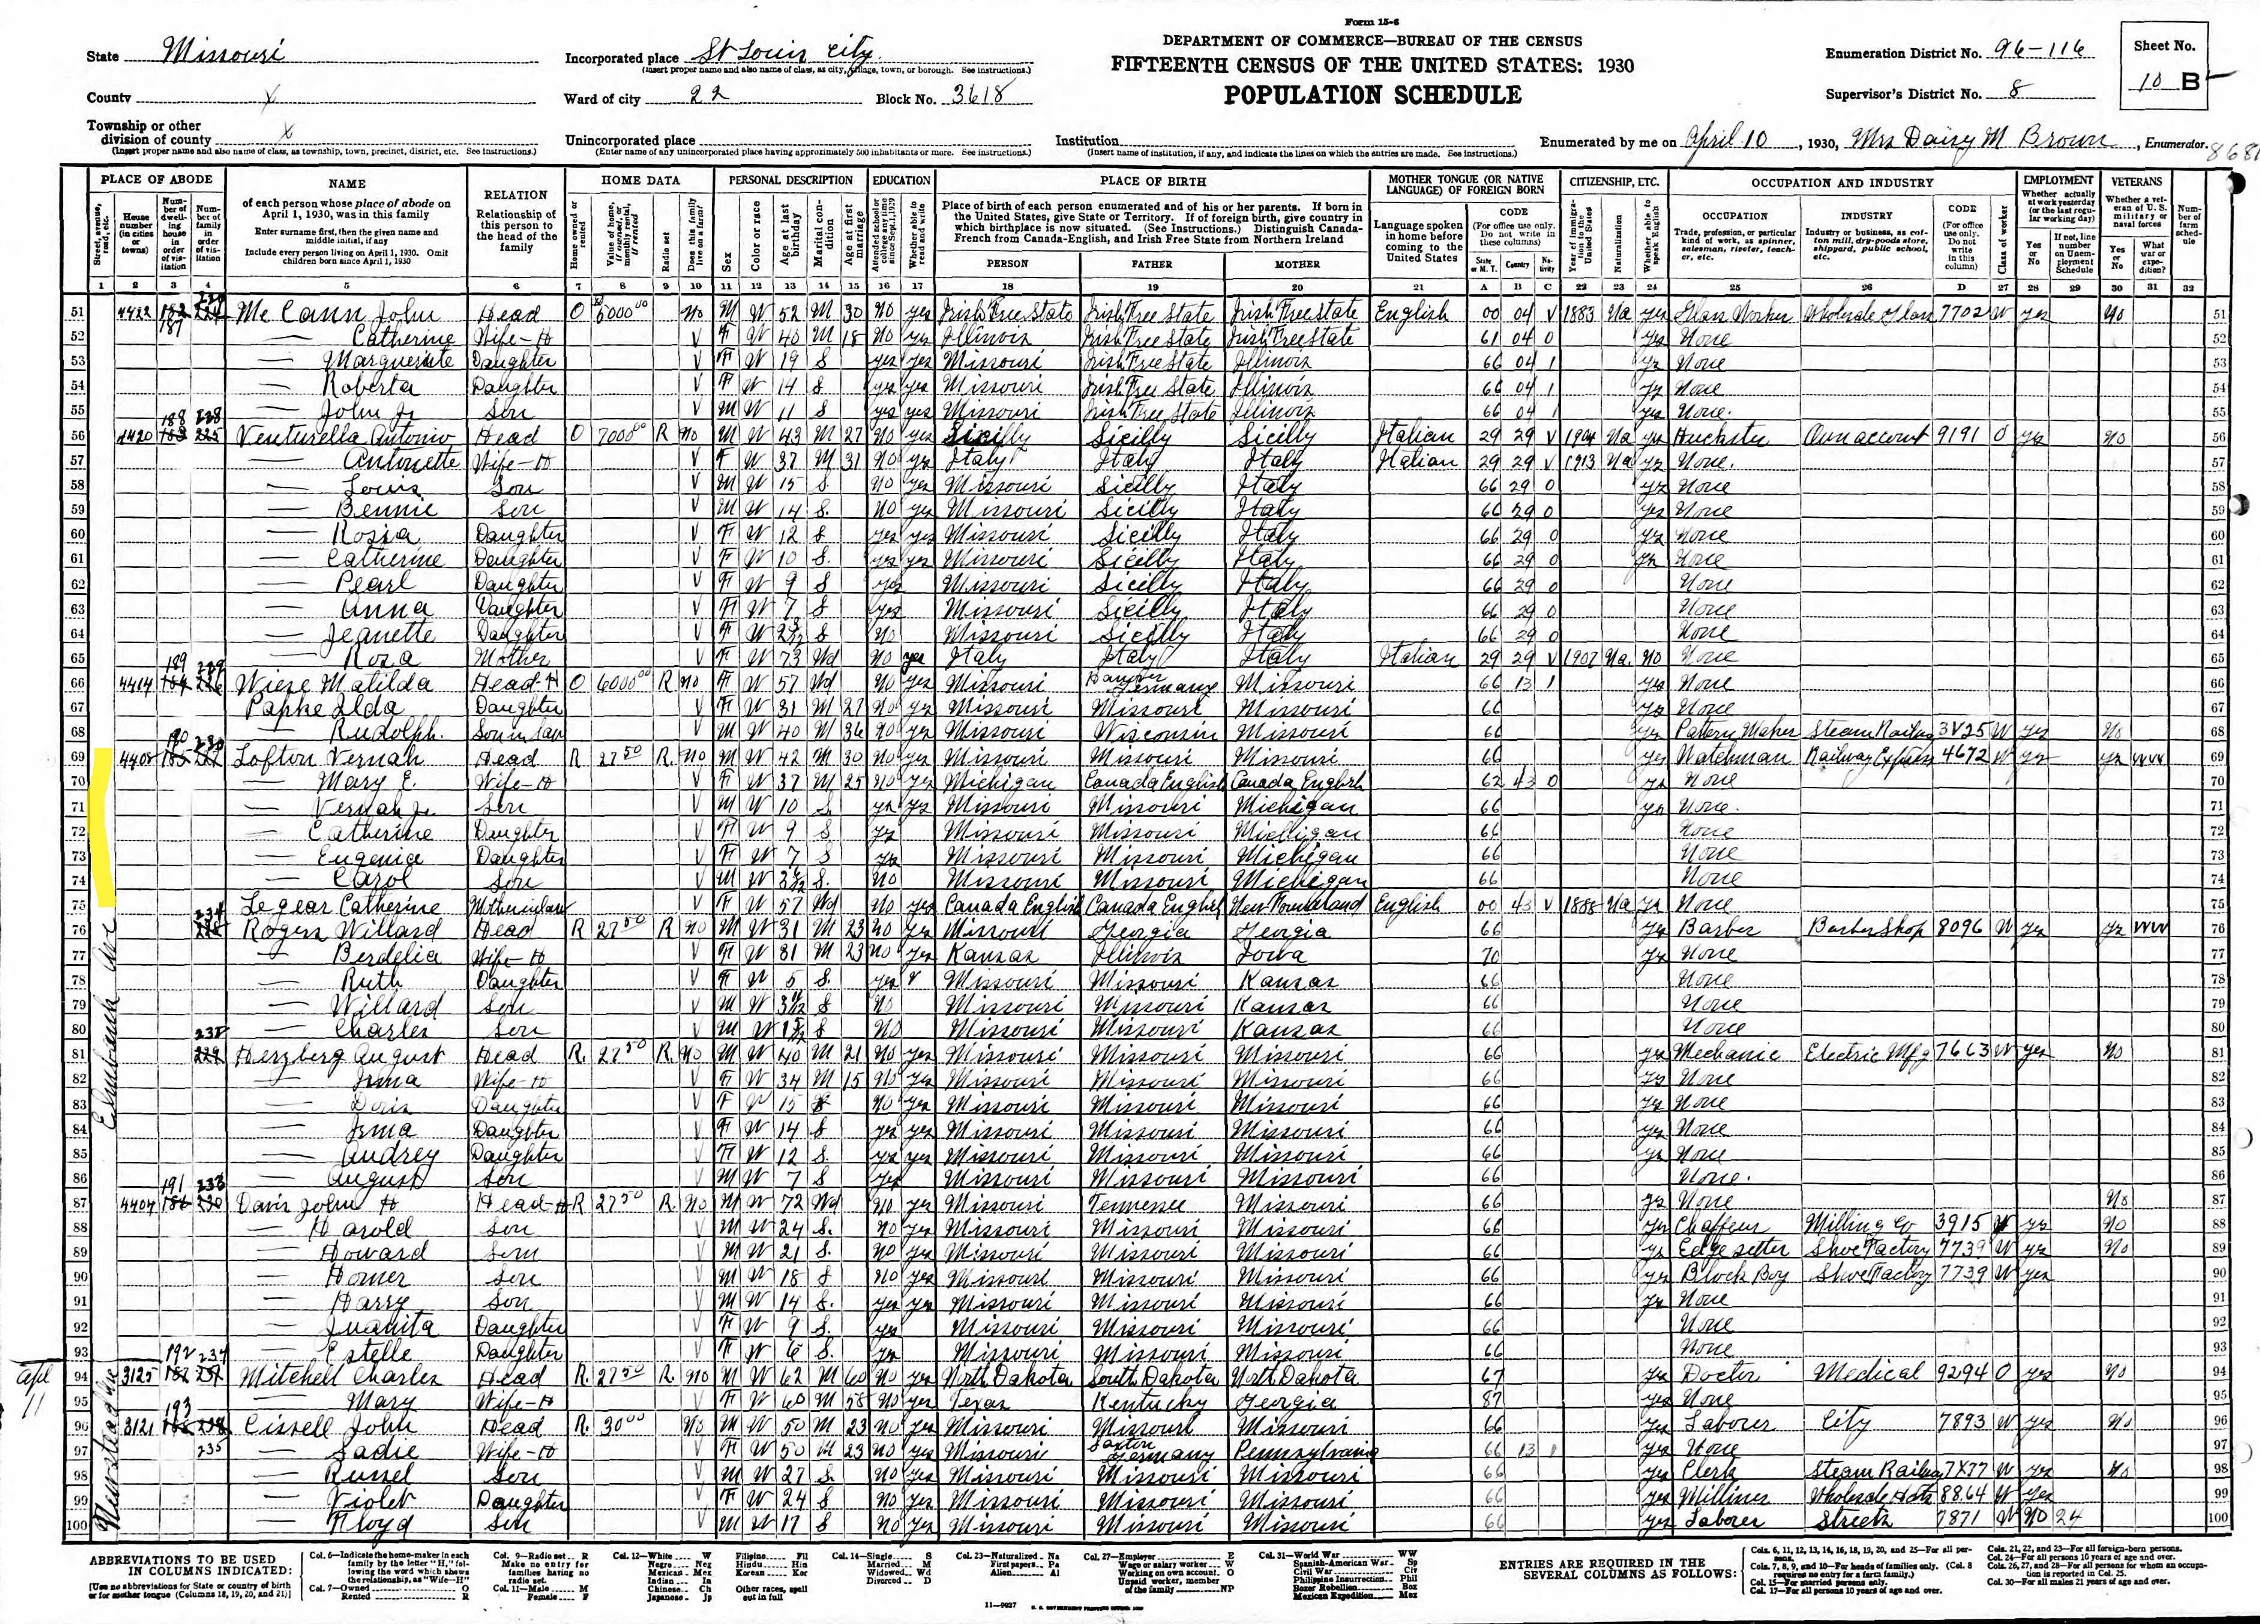 Form 15-6
DEPARTMENT OF COMMERCE—BUREAU OF THE CENSUS
FIFTEENTH CENSUS OF THE UNITED STATES: 1930
POPULATION SCHEDULE
State Missouri
Incorporated place St Louis City
(Insert proper name and also name of class, as city, village, town, or borough. See instructions.)
Enumeration District No. 96-116
Sheet No.
10 B
County X
Ward of city 22 Block No. 3618
Supervisor's District No. 8
Township or other division of county X
(Insert proper name and also name of class, as township, town, precinct, district, etc. See instructions.)
Unincorporated place
(Enter name of any unincorporated place having approximately 500 inhabitants or more. See instructions.)
Institution
(Insert name of institution, if any, and indicate the lines on which the entries are made. See instructions.)
Enumerated by me on April 10, 1930, Mrs Daisy M Brown, Enumerator.
PLACE OF ABODE NAME RELATION HOME DATA PERSONAL DESCRIPTION EDUCATION PLACE OF BIRTH MOTHER TONGUE (OR NATIVE LANGUAGE) OF FOREIGN BORN CITIZENSHIP, ETC. OCCUPATION AND INDUSTRY EMPLOYMENT VETERANS
of each person whose place of abode on April 1, 1930, was in this family
Enter surname first, then the given name and middle initial, if any
Include every person living on April 1, 1930. Omit children born since April 1, 1930
Relationship of this person to the head of the family
Place of birth of each person enumerated and of his or her parents. If born in the United States, give State or Territory. If of foreign birth, give country in which birthplace is now situated. (See Instructions.) Distinguish Canada-French from Canada-English, and Irish Free State from Northern Ireland
PERSON FATHER MOTHER
1 2 3 4 5 6 7 8 9 10 11 12 13 14 15 16 17 18 19 20 21 A B C 22 23 24 25 26 D 27 28 29 30 31 32
51 4422 187 McCann John Head O 6000 No M W 52 M 30 No yes Irish Free State Irish Free State Irish Free State English 00 04 V 1883 Na yes Glass Worker Wholesale Glass 7702 W yes No 51
52 — Catherine Wife-H V F W 40 M 18 No yes Illinois Irish Free State Irish Free State 61 04 0 yes None 52
53 — Marguerite Daughter V F W 19 S yes yes Missouri Irish Free State Illinois 66 04 1 yes None 53
54 — Roberta Daughter V F W 14 S yes yes Missouri Irish Free State Illinois 66 04 1 yes None 54
55 — John Jr Son V M W 11 S yes yes Missouri Irish Free State Illinois 66 04 1 yes None 55
56 4420 188 228 Venturella Antonio Head O 7000 R No M W 43 M 27 No yes Sicilly Sicilly Sicilly Italian 29 29 V 1904 Na yes Huckster Own account 9191 O yes No 56
57 — Antonette Wife-H V F W 37 M 31 No yes Italy Italy Italy Italian 29 29 V 1913 Na yes None 57
58 — Louis Son V M W 15 S No yes Missouri Sicilly Italy 66 29 0 yes None 58
59 — Bennie Son V M W 14 S No yes Missouri Sicilly Italy 66 29 0 yes None 59
60 — Rosia Daughter V F W 12 S yes yes Missouri Sicilly Italy 66 29 0 yes None 60
61 — Catherine Daughter V F W 10 S yes yes Missouri Sicilly Italy 66 29 0 yes None 61
62 — Pearl Daughter V F W 9 S yes Missouri Sicilly Italy 66 29 0 None 62
63 — Anna Daughter V F W 7 S yes Missouri Sicilly Italy 66 29 0 None 63
64 — Jeanette Daughter V F W S No Missouri Sicilly Italy 66 29 0 None 64
65 — Rosa Mother V F W 73 Wd No yes Italy Italy Italy Italian 29 29 V 1907 Na No None 65
66 4414 189 229 Wiese Matilda Head H O 6000 R No F W 57 Wd No yes Missouri Germany Missouri 66 13 1 yes None 66
67 Papke Ilda Daughter V F W 31 M 27 No yes Missouri Missouri Missouri 66 yes None 67
68 — Rudolph Son in law V M W 40 M 36 No yes Missouri Wisconsin Missouri 66 yes Pattern Maker Steam Railway 3V25 W yes No 68
69 4408 190 230 Lofton Vernah Head R 27 50 R No M W 42 M 30 No yes Missouri Missouri Missouri 66 yes Watchman Railway Express 4672 W yes yes WW 69
70 — Mary E. Wife-H V F W 37 M 25 No yes Michigan Canada English Canada English 62 43 0 yes None 70
71 — Vernah Jr Son V M W 10 S yes yes Missouri Missouri Michigan 66 yes None 71
72 — Catherine Daughter V F W 9 S yes Missouri Missouri Michigan 66 None 72
73 — Eugenia Daughter V F W 7 S yes Missouri Missouri Michigan 66 None 73
74 — Carol Son V M W S No Missouri Missouri Michigan 66 None 74
75 Legear Catherine Mother in law V F W 57 Wd No yes Canada English Canada English New Foundland English 00 43 V 1888 Na yes None 75
76 231 Rogers Willard Head R 27 50 R No M W 31 M 23 No yes Missouri Georgia Georgia 66 yes Barber Barber Shop 8096 W yes yes WW 76
77 — Berdelia Wife-H V F W 31 M 23 No yes Kansas Illinois Iowa 70 yes None 77
78 — Ruth Daughter V F W 5 S yes Missouri Missouri Kansas 66 None 78
79 — Willard Son V M W S No Missouri Missouri Kansas 66 None 79
80 — Charles Son V M W S No Missouri Missouri Kansas 66 None 80
81 232 Herzberg August Head R 27 50 R No M W 40 M 21 No yes Missouri Missouri Missouri 66 yes Mechanic Electric Mfg 7663 W yes No 81
82 — Irma Wife-H V F W 34 M 15 No yes Missouri Missouri Missouri 66 yes None 82
83 — Doris Daughter V F W 15 S No yes Missouri Missouri Missouri 66 yes None 83
84 — Irma Daughter V F W 14 S yes yes Missouri Missouri Missouri 66 yes None 84
85 — Audrey Daughter V F W 12 S yes yes Missouri Missouri Missouri 66 yes None 85
86 — August Son V M W 7 S yes Missouri Missouri Missouri 66 None 86
87 4404 191 233 Davis John H Head-H R 27 50 R No M W 72 Wd No yes Missouri Tennessee Missouri 66 yes None No 87
88 — Harold Son V M W 24 S No yes Missouri Missouri Missouri 66 yes Chaffeur Milling Co 3915 W yes No 88
89 — Howard Son V M W 21 S No yes Missouri Missouri Missouri 66 yes Edge setter Shoe Factory 7739 W yes No 89
90 — Homer Son V M W 18 S No yes Missouri Missouri Missouri 66 yes Block Boy Shoe Factory 7739 W yes 90
91 — Harry Son V M W 14 S yes yes Missouri Missouri Missouri 66 yes None 91
92 — Juanita Daughter V F W 9 S yes Missouri Missouri Missouri 66 None 92
93 — Estelle Daughter V F W 6 S yes Missouri Missouri Missouri 66 None 93
94 3125 192 234 Mitchell Charles Head R 27 50 R No M W 62 M 60 No yes North Dakota South Dakota North Dakota 67 yes Doctor Medical 9294 O yes No 94
95 — Mary Wife-H V F W 60 M 58 No yes Texas Kentucky Georgia 87 yes None 95
96 3121 193 235 Cissell John Head R 30 00 No M W 50 M 23 No yes Missouri Missouri Missouri 66 yes Laborer City 7893 W yes No 96
97 — Sadie Wife-H V F W 50 M 23 No yes Missouri Germany Pennsylvania 66 13 1 yes None 97
98 — Russel Son V M W 27 S No yes Missouri Missouri Missouri 66 yes Clerk Steam Railway 7X77 W yes No 98
99 — Violet Daughter V F W 24 S No yes Missouri Missouri Missouri 66 yes Milliner Wholesale Hats 8864 W yes 99
100 — Floyd Son V M W 17 S No yes Missouri Missouri Missouri 66 yes Laborer Streets 7871 W No 24 100
ABBREVIATIONS TO BE USED IN COLUMNS INDICATED:
[Use no abbreviations for State or country of birth or for mother tongue (Columns 18, 19, 20, and 21)]
Col. 6—Indicate the home-maker in each family by the letter "H," following the word which shows the relationship, as "Wife—H"
Col. 7—Owned O
Rented R
Col. 9—Radio set R
Make no entry for families having no radio set.
Col. 11—Male M
Female F
Col. 12—White W
Negro Neg
Mexican Mex
Indian In
Chinese Ch
Japanese Jp
Filipino Fil
Hindu Hin
Korean Kor
Other races, spell out in full
Col. 14—Single S
Married M
Widowed Wd
Divorced D
Col. 23—Naturalized Na
First papers Pa
Alien Al
Col. 27—Employer E
Wage or salary worker W
Working on own account O
Unpaid worker, member of the family NP
Col. 31—World War WW
Spanish-American War Sp
Civil War Civ
Philippine Insurrection Phil
Boxer Rebellion Box
Mexican Expedition Mex
ENTRIES ARE REQUIRED IN THE SEVERAL COLUMNS AS FOLLOWS:
Cols. 6, 11, 12, 13, 14, 16, 18, 19, 20, and 25—For all persons.
Cols. 7, 8, 9, and 10—For heads of families only. (Col. 8 requires no entry for a farm family.)
Col. 15—For married persons only.
Col. 17—For all persons 10 years of age and over.
Cols. 21, 22, and 23—For all foreign-born persons.
Col. 24—For all persons 10 years of age and over.
Cols. 26, 27, and 28—For all persons for whom an occupation is reported in Col. 25.
Col. 30—For all males 21 years of age and over.
11—9937 U. S. GOVERNMENT PRINTING OFFICE